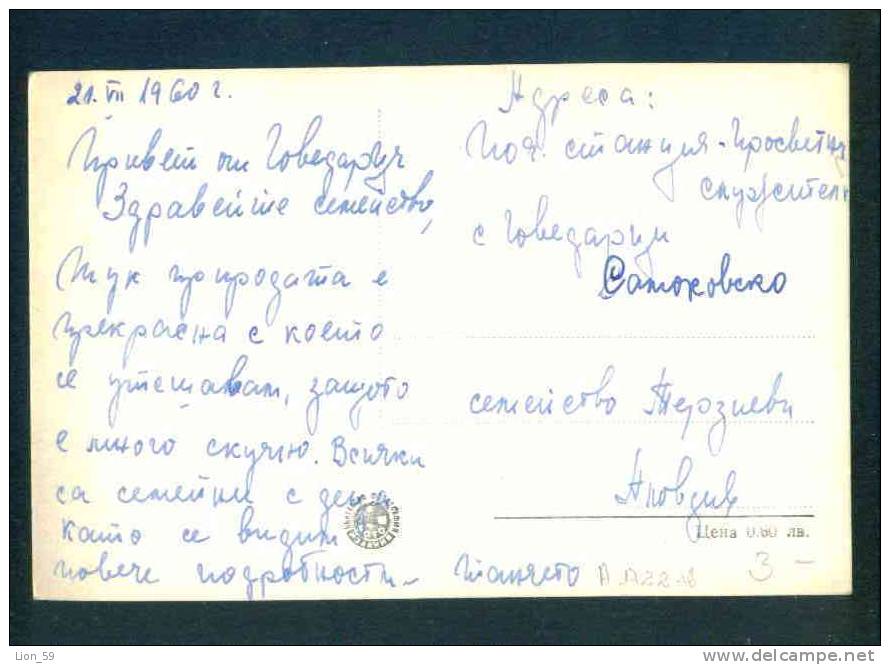 21. VII 1960 г.
Привет от Говедарци
Здравейте семейство,
Тук природата е
прекрасна с което
се утешавам, защото
е много скучно. Всички
са семейни с деца
като се видим
повече подробности –
Танчето
Адреса:
Поч. станция - Просветни
служители
с Говедарци
Самоковско
семейство Терзиеви
Пловдив
Цена 0.60 лв.
3 –
Lion_59
www.delcampe.net